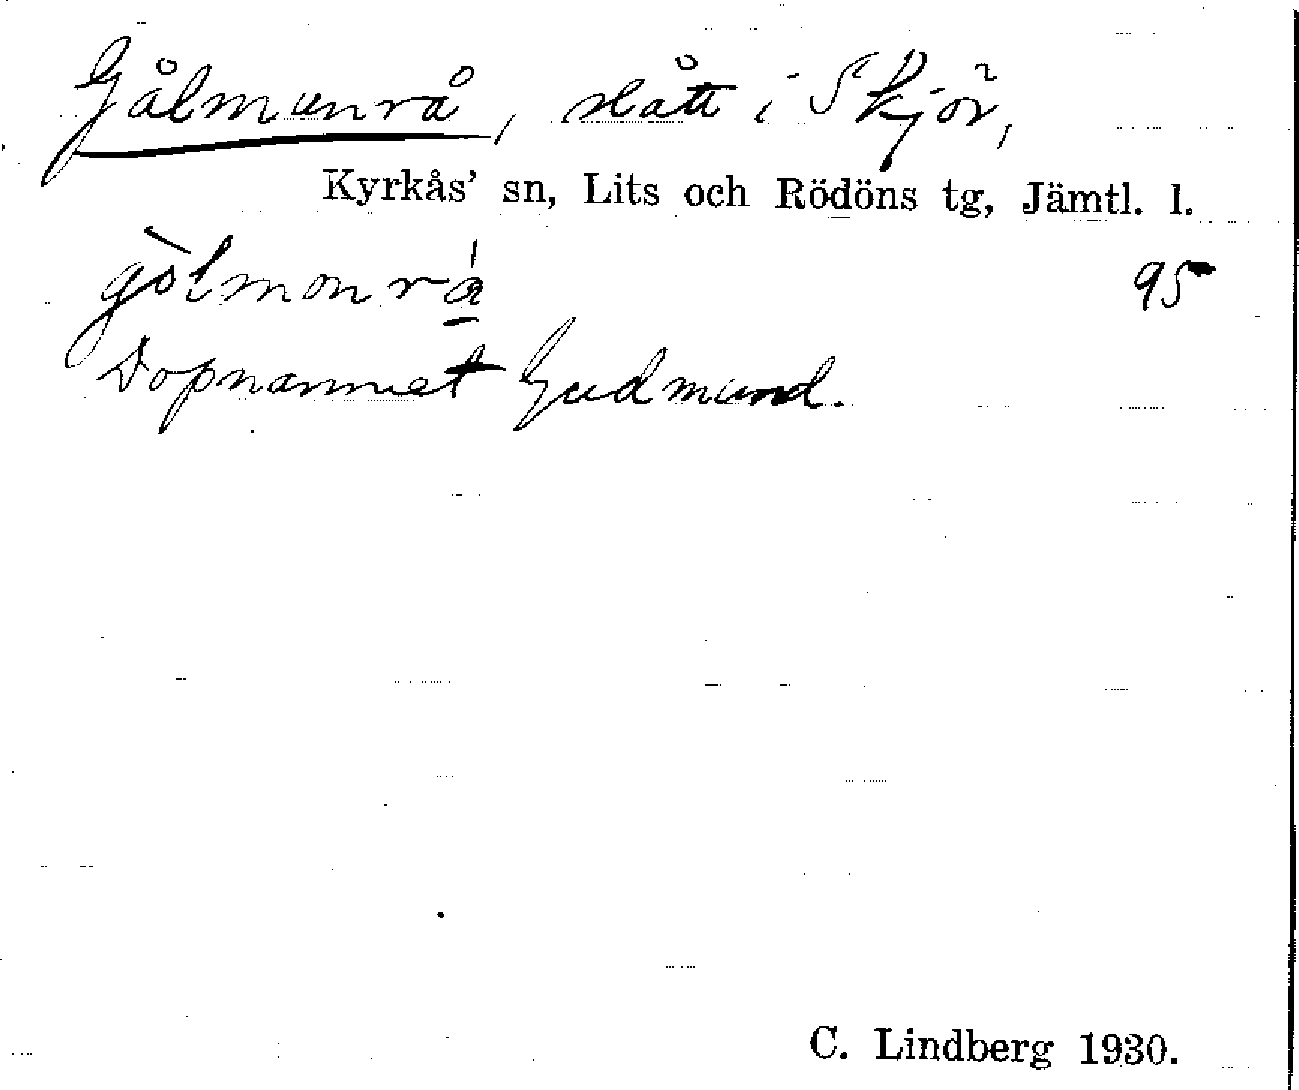 Gålmunrå, slått i Skjör,
Kyrkås' sn, Lits och Rödöns tg, Jämtl. l.
gòlmonrá 95
Dopnamnet Gudmund.
C. Lindberg 1930.